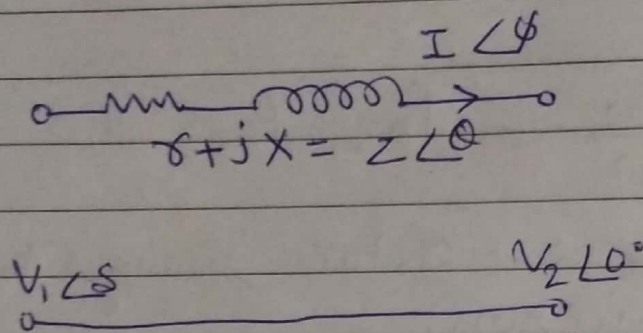 I ∠φ
r+jX = Z∠θ
V₁∠δ V₂∠0°